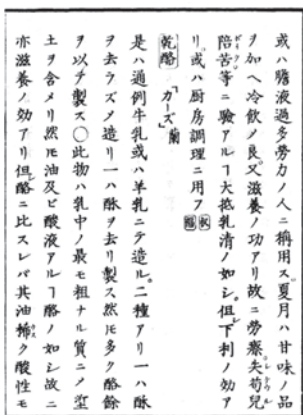 或ハ膽液過多勞力ノ人ニ稱用ス夏月ハ甘味ノ品
ヲ加ヘ冷飲ノ良又滋養ノ功アリ故ニ勞瘵失苟兒
陪苦等ニ驗アルヿ大抵乳清ノ如シ但下利ノ効ア
リ或ハ厨房調理ニ用フ
乾酪 「カーズ」蘭
是ハ通例牛乳或ハ羊乳ニテ造ル二種アリ一ハ酥
ヲ去ラズメ造リ一ハ酥ヲ去リ製ス然𪜈多ク酪餘
ヲ以テ製ス〇此物ハ乳中ノ最モ粗ナル質ニメ堊
土ヲ含メリ然𪜈油及ビ酸液アルヿ酪ノ如シ故ニ
亦滋養ノ効アリ但酪ニ比スレバ其油稀ク酸性モ